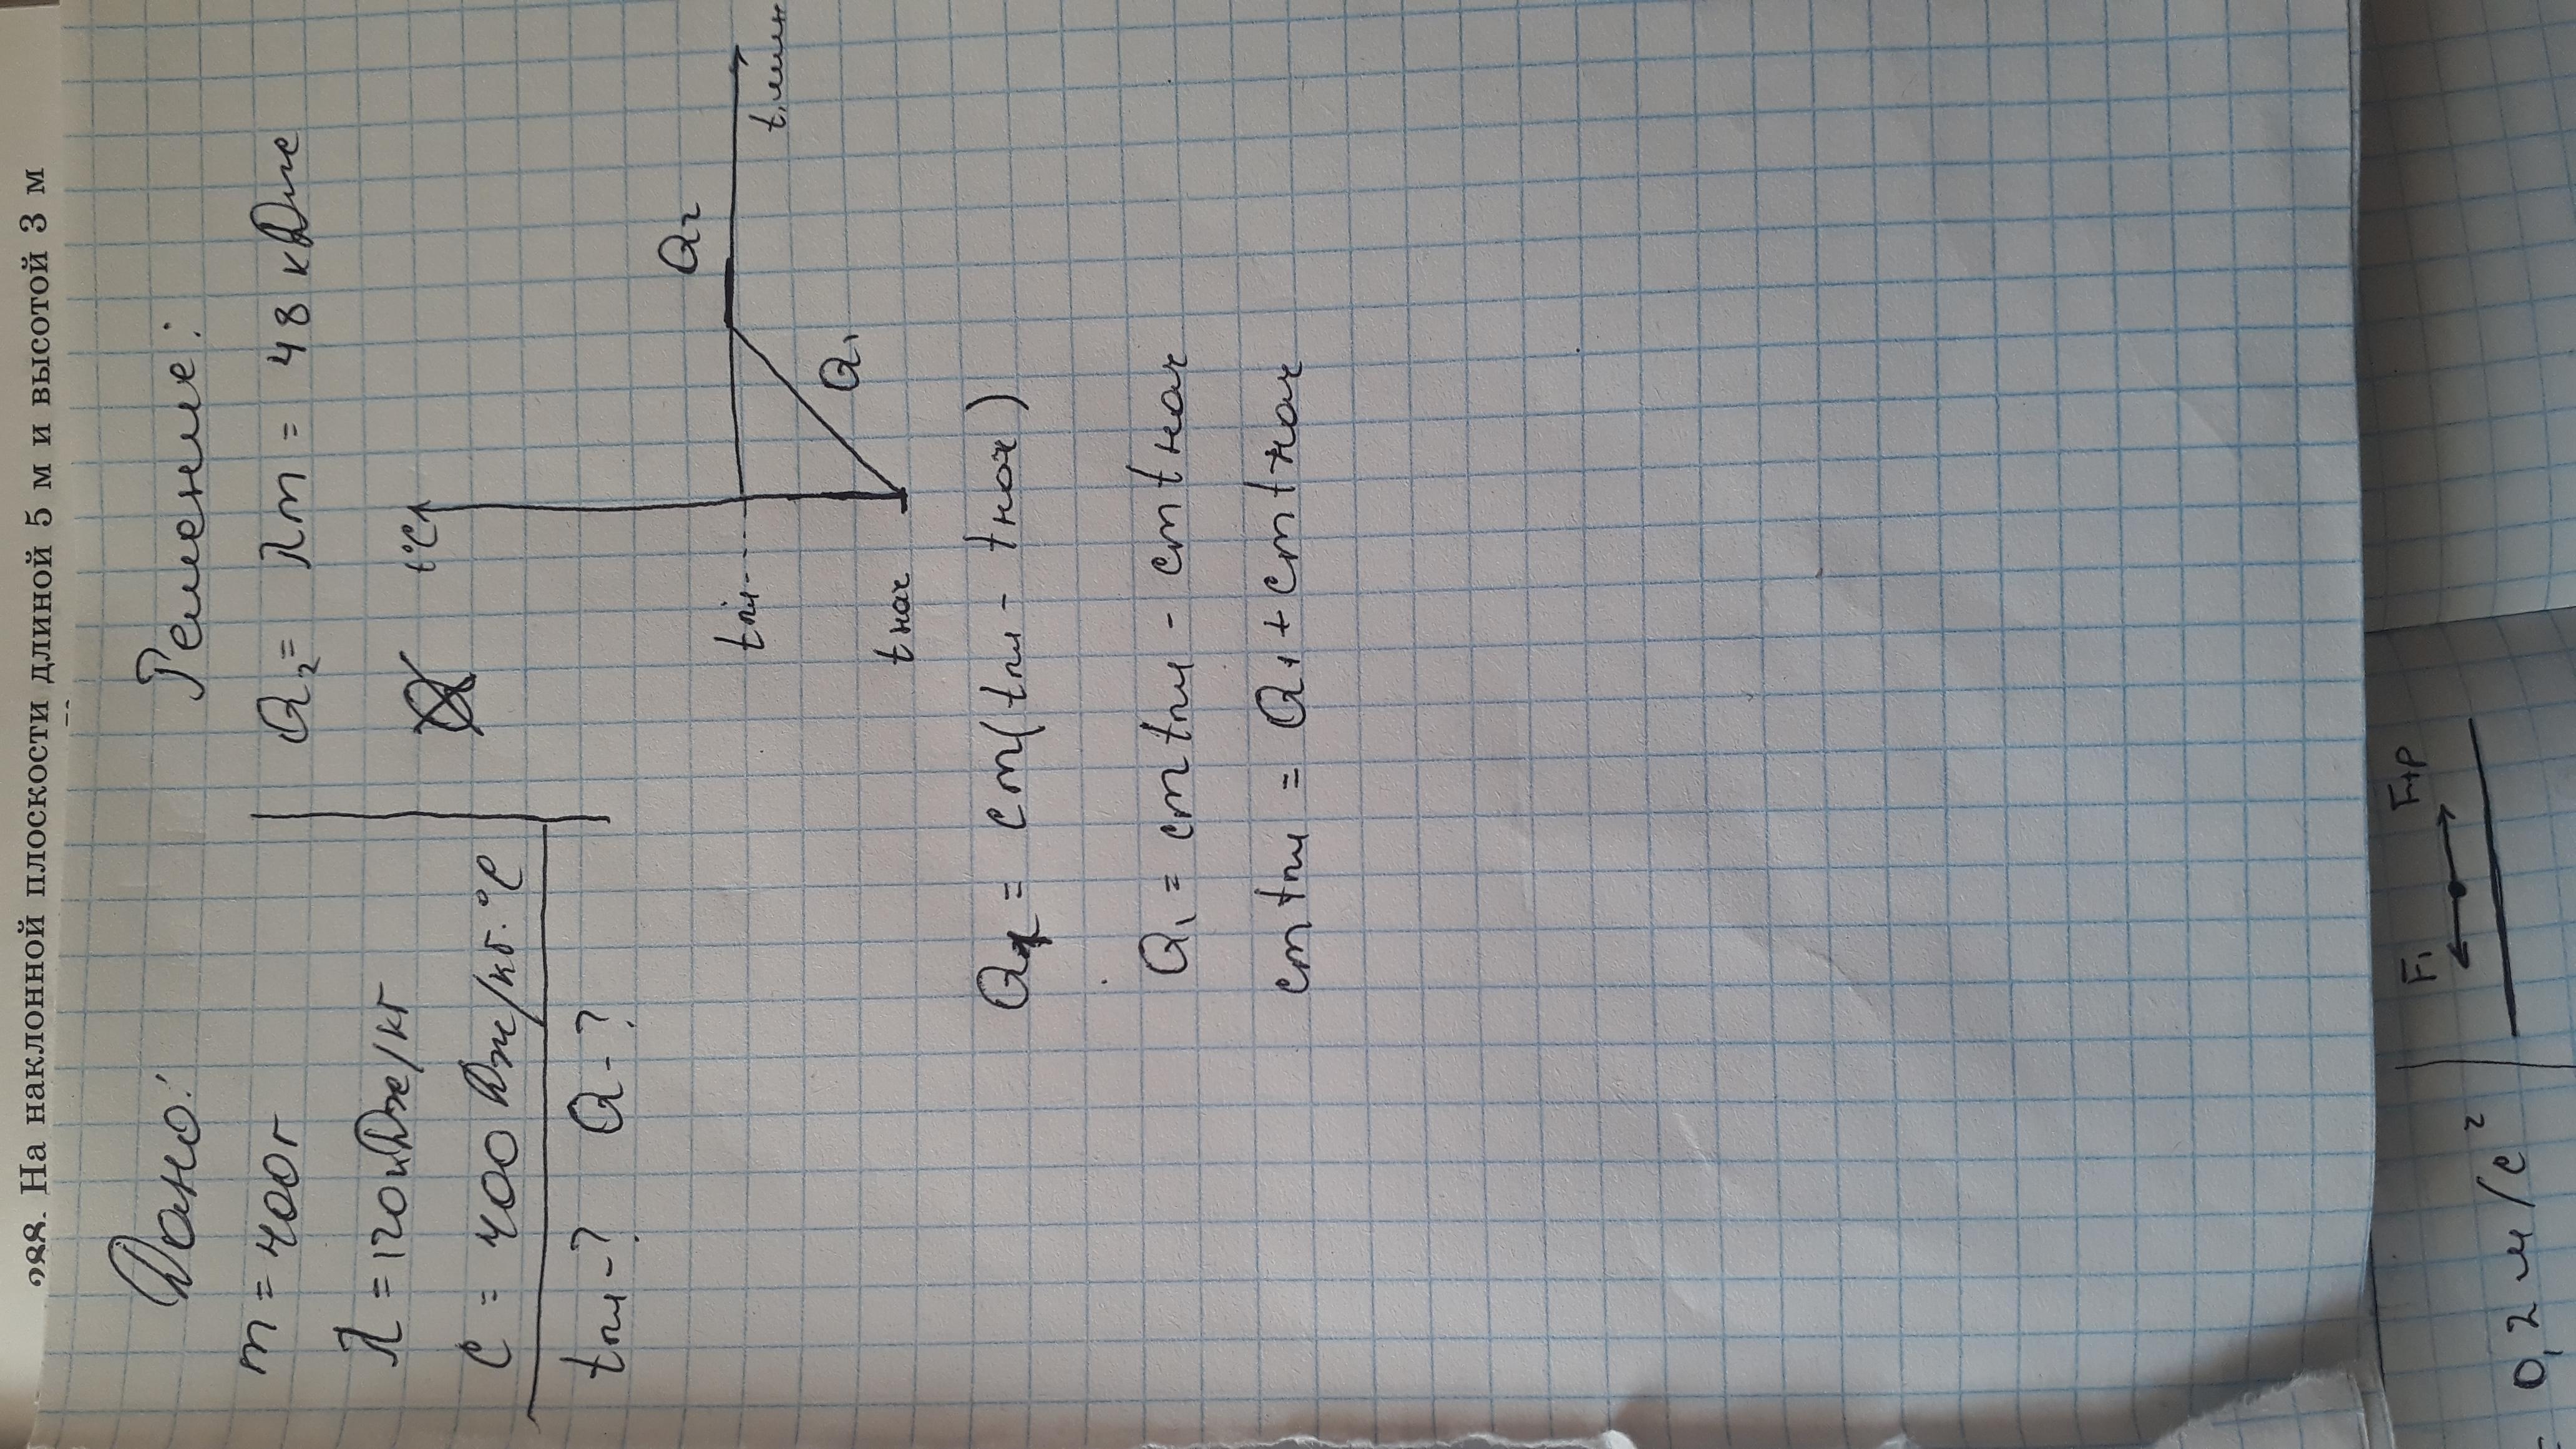 288. На наклонной плоскости длиной 5 м и высотой 3 м
Дано:
m = 400г
λ = 120кДж/кг
c = 400 Дж/кг·°C
tпл-? Q-?
Решение:
Q₂ = λm = 48 кДж
t°C
tпл
tнач
Q₁
Q₂
t,мин
Q₁ = cm(tпл - tнач)
Q₁ = cmtпл - cmtнач
cmtпл = Q₁ + cmtнач
0,2 м/с²
F₁
Fтр